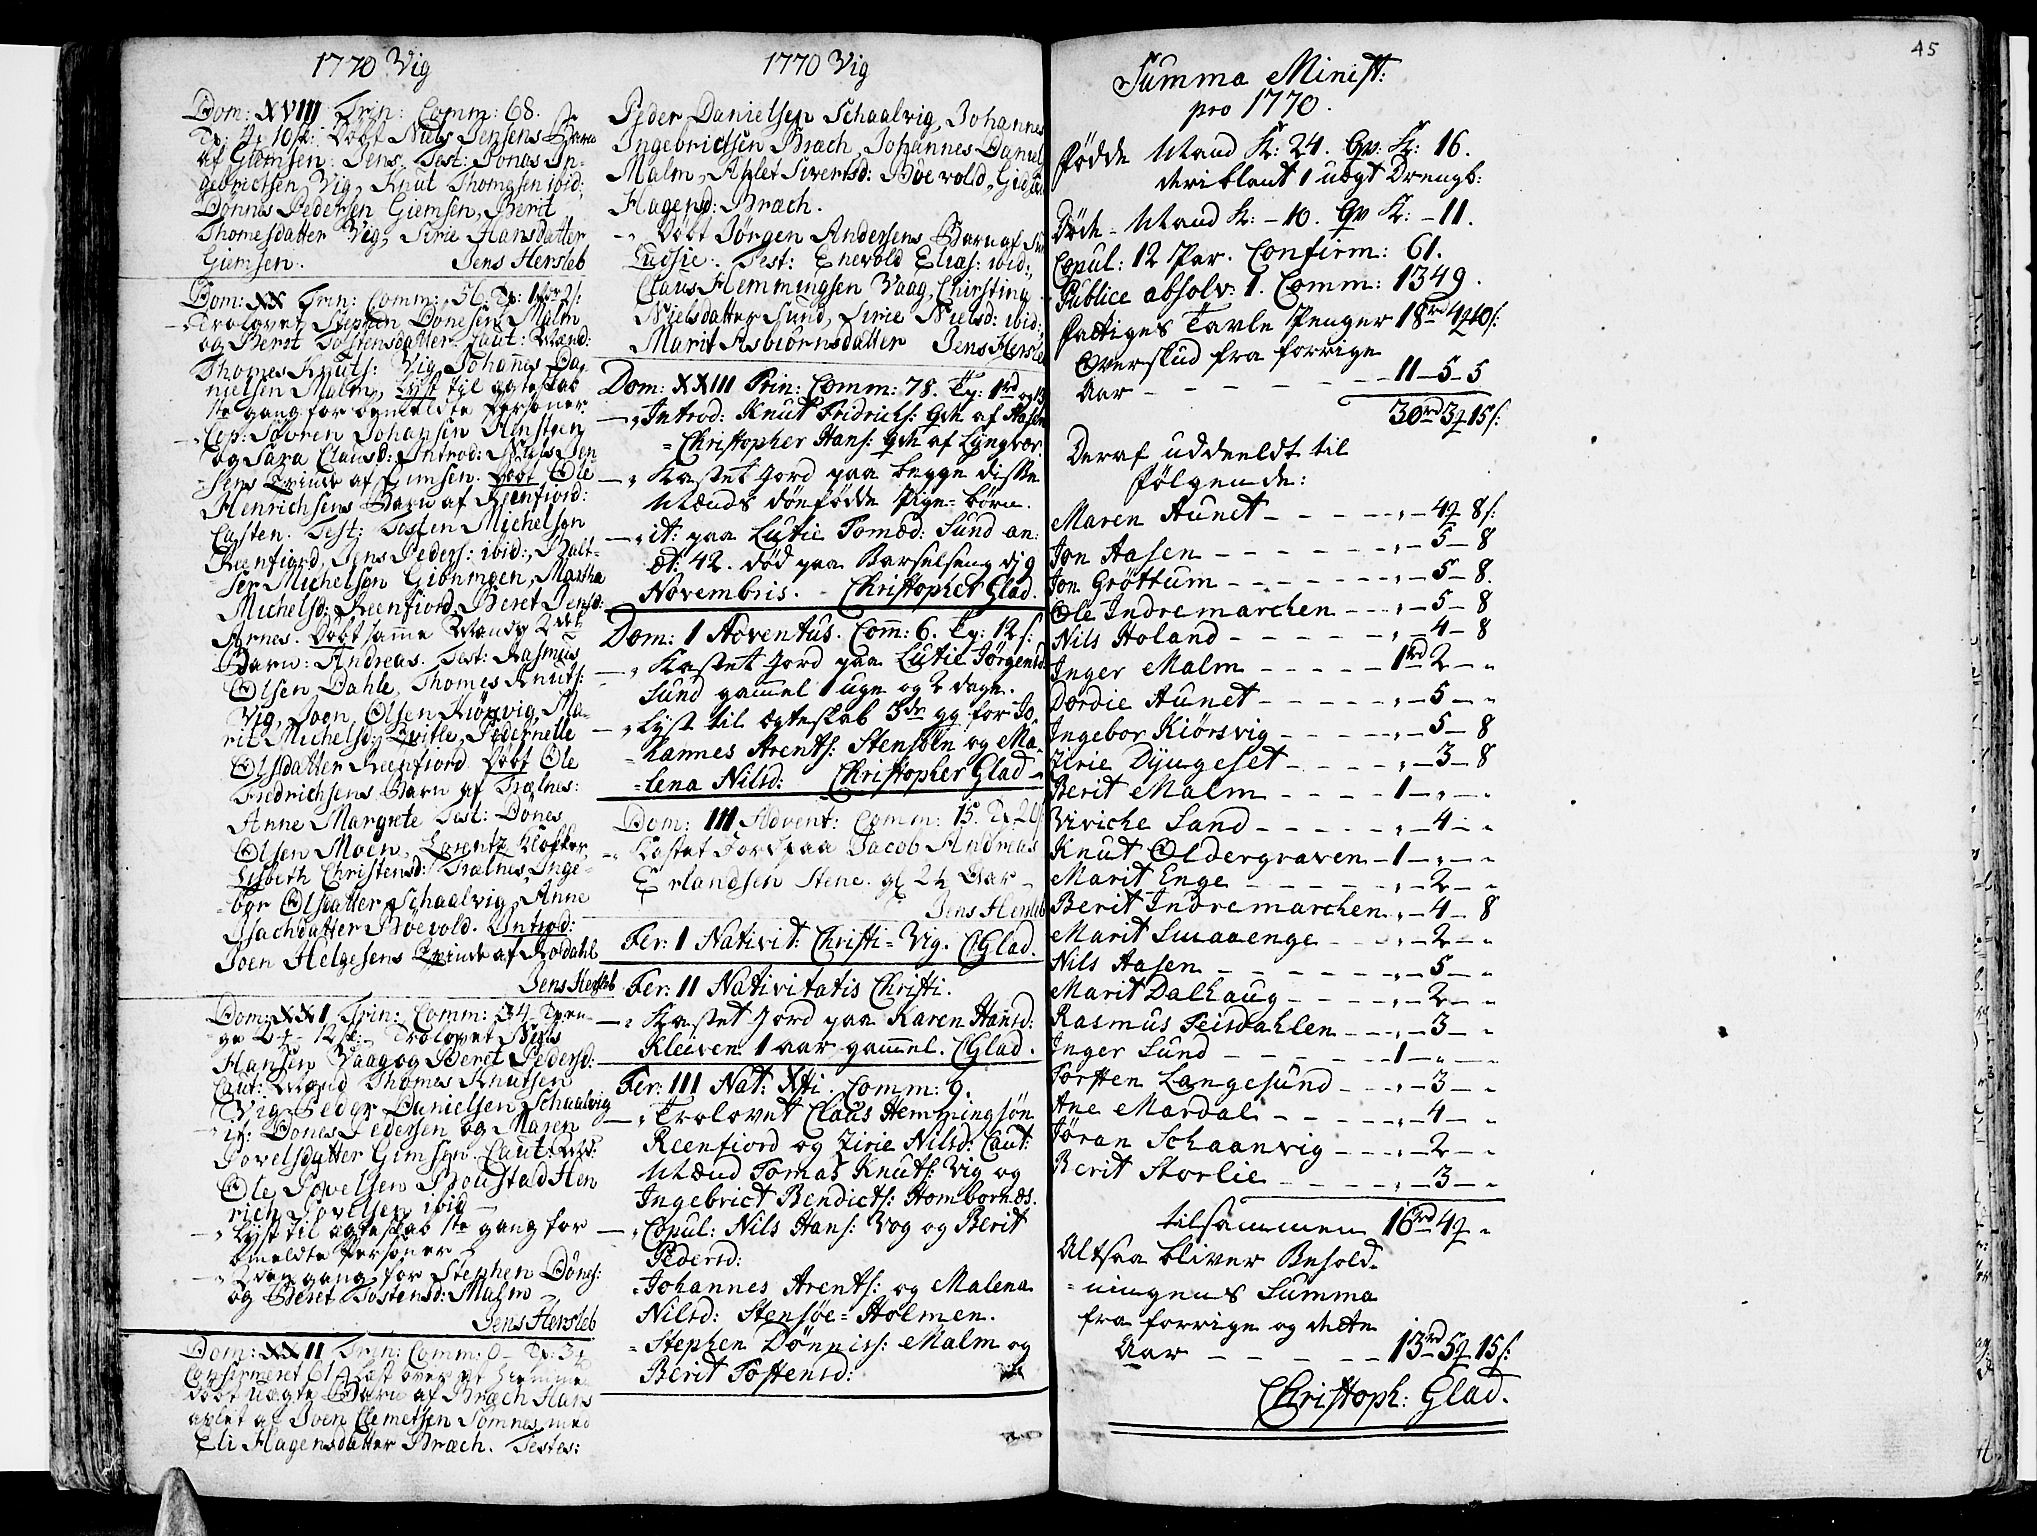 1770 Vig
Dom: XVIII Trin: Comm: 68.
Tp: 4 10 sk: Døbt Niels Jensens Barn
af Giemsen: Jens. Test: Jonas In-
gebrictsen Vig, Knut Thomesen ibid:
Dønnes Pedersen Giemsen, Berit
Thomesdatter Vig, Sirie Hansdatter
Giemsen. Jens Hersleb
Dom: XX Trin: Comm: 56. Tp:
Trolovet Stephen Dønesen Malm
og Berit Tostensdatter Caut: Mænd:
Thomes Knuts: Vig, Johannes Da-
nielsen Malm, Lyst til ægteskab
1te gang for bemeldte Personer.
Cop: Søvren Johansen Stensøen
og Sara Clausd: Introd: Niels Jen
sens Qvinde af Giemsen. Døbt Ole
Henrichsens Barn af Reenfiord:
Casten. Test: Tosten Michelsen
Reenfiord, Jens Peders: ibid:, Balt-
ser Michelsen, Martha
Michelsd: Reenfiord, Beret Jensd:
Arnes. Døbt samme Mands 2det
Barn: Andreas. Test: Rasmus
Olsen Dahle, Thomes Knuts:
Vig, Joen Olsen Kiørsvig, Ma-
rit Michelsd: Qvitle, Pedernelle
Olsdatter Reenfiord Døbt Ole
Fredrichsens Barn af Trælnes:
Anne Margrete Test: Dønes
Olsen Moen, Lorentz Klokker
Lisbeth Christensd: Trælnes, Inge-
bor Olsdatter Schaalvig, Anne
Isachdatter Bøevold. Introd:
Joen Helgesens Qvinde af Rosdahl
Jens Hersleb
Dom: XXI Trin: Comm: 34 Tpen-
ge 2 - 12 sk: - Trolovet Niels
Hansen Vaag og Beret Pedersd:
Caut: Mænd Thomes Knutsen
Vig, Peder Danielsen Schaalvig
it: Dønes Pedersen og Maren
Povelsdatter Gimsen Caut: Md:
Ole Povelsen Hen
rich Povelsen ibid
Lyst til ægteskab 1te gang for
bmeldte Personer
2den gang for Stephen Dønes:
og Beret Tostensd: Malm
Jens Hersleb
Dom: XXII Trin: Comm: 0 - Tp: 3
Confirmeret 61
Døbt uægte Barn af Bræch Hans
avlet af Joen Clemetsen Somnes med
Eli Hagensdatter Bræch. Testes:
1770 Vig
Peder Danielsen Schaalvig, Johannes
Ingebrictsen Bræch, Johannes Daniel
Malm, Ahlet Sivertsd: Bøevold,
Hagensd: Bræch.
Døbt Jørgen Andersens Barn af
Ludsie. Test: Enevold Elias: ibid:,
Claus Hemmingsen Vaag, Chirsting
Nielsdatter Sund, Sirie Nielsd: ibid:,
Marit Asbiørnsdatter Jens Hersle
Dom: XXIII Trin: Comm: 78. Tp: 1rd og 13
Introd: Knut Fridrichs: Qv: af Aasen
Christopher Hans: Qv: af Lyngvær.
Kastet Jord paa begge disse
Mænds dønfødde Pige-børn.
it: paa Lutie Tomæd: Sund an:
æt: 42. død paa Barselseng d: 9
Novembris. Christopher Glad.
Dom: 1 Adventus. Com: 6. Tp: 12 s:
Kastet Jord paa Lutie Jørgensd:
Sund gammel 1 uge og 2 dage.
Lyst til Ægteskab 3de gg for Jo
hannes Arents: Stensøen og Ma-
lena Nilsd: Christopher Glad
Dom: III Advent: Comm: 15. Tp: 20
Kastet Jord paa Jacob Andreas
Erlandsen Stene. gl 2½ Aar
Jens Hersleb
Fer: I Nativit: Christi = Vig. CGlad.
Fer: II Nativitatis Christi.
Kastet Jord paa Karen Hansd:
Kleiven 1 aar gammel. CGlad.
Fer: III Nat: Xti. Comm: 9.
Trolovet Claus Hemmingsøn
Reenfiord og Zirie Nilsd: Caut:
Mænd Tomas Knuts: Vig og
Ingebrict Bendicts: Hombornæs.
Copul: Nils Hans: Vog og Berit
Pedersd:
Johannes Arents: og Malena
Nilsd: Stensøe=Holmen.
Stephen Dønnies: Malm og
Berit Tostensd:
45
Summa Minist:
pro 1770.
Fødde Mand K: 24. Qv: K: 16.
deriblant 1 uægt Drengb:
Døde - Mand K: - 10. Qv K: - 11.
Copul: 12 Par. Confirm: 61.
Publice absolv: 1. Comm: 1349.
Fattiges Tavle Penger 18rd 4 10 s:
Overskud fra forrige
Aar - - - - - - 11 - 5 - 5
30rd 3 15 s:
Deraf uddeeldt til
Følgende:
Maren Aunet - - - - „ - 4 8 s:
Jon Aasen - - - - - „ - 5 - 8
Jon Grøttum - - - - - „ - 5 - 8.
Ole Indremarchen - - - „ - 5 - 8
Nils Holand - - - - - „ - 4 - 8
Inger Malm - - - - - 1rd 2 - „
Dordie Aunet - - - - - „ - 5 - „
Ingebor Kiörsvig - - - - „ - 5 - 8
Zirie Dyngeset - - - - - „ - 3 - 8
Berit Malm - - - - 1 - „ - „
Viviche Sand - - - - - „ - 4 - „
Knut Oldergraven - 1 - „ - „
Marit Enge - - - - - „ - 2 - „
Berit Indremarchen „ - 4 - 8
Marit Smaaenge - - - „ - 2 - „
Nils Aasen - - - - - - „ - 5 - „
Marit Dalhaug - - - - „ - 2 - „
Rasmus Feisdahlen - - - „ - 3 - „
Inger Sund - - - - - 1 - „ - „
Torsten Langesund - - - „ - 3 - „
Ane Mardal - - - - - „ - 4 - „
Jøran Schaanvig - - - „ - 2 - „
Berit Storlie - - - - „ - 3 - „
tilsammen 16rd 4 „
Altsaa bliver Behold-
ningens Summa
fra forrige og dette
Aar - - - - - 13rd 5 15 s:
Christoph: Glad.